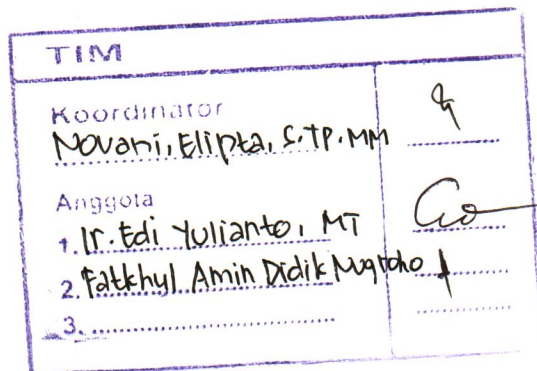 TIM
Koordinator
Novani, Elipta, S.TP. MM
Anggota
1. Ir. Edi Yulianto, MT
2. Fatkhul Amin Didik Nugroho
3.